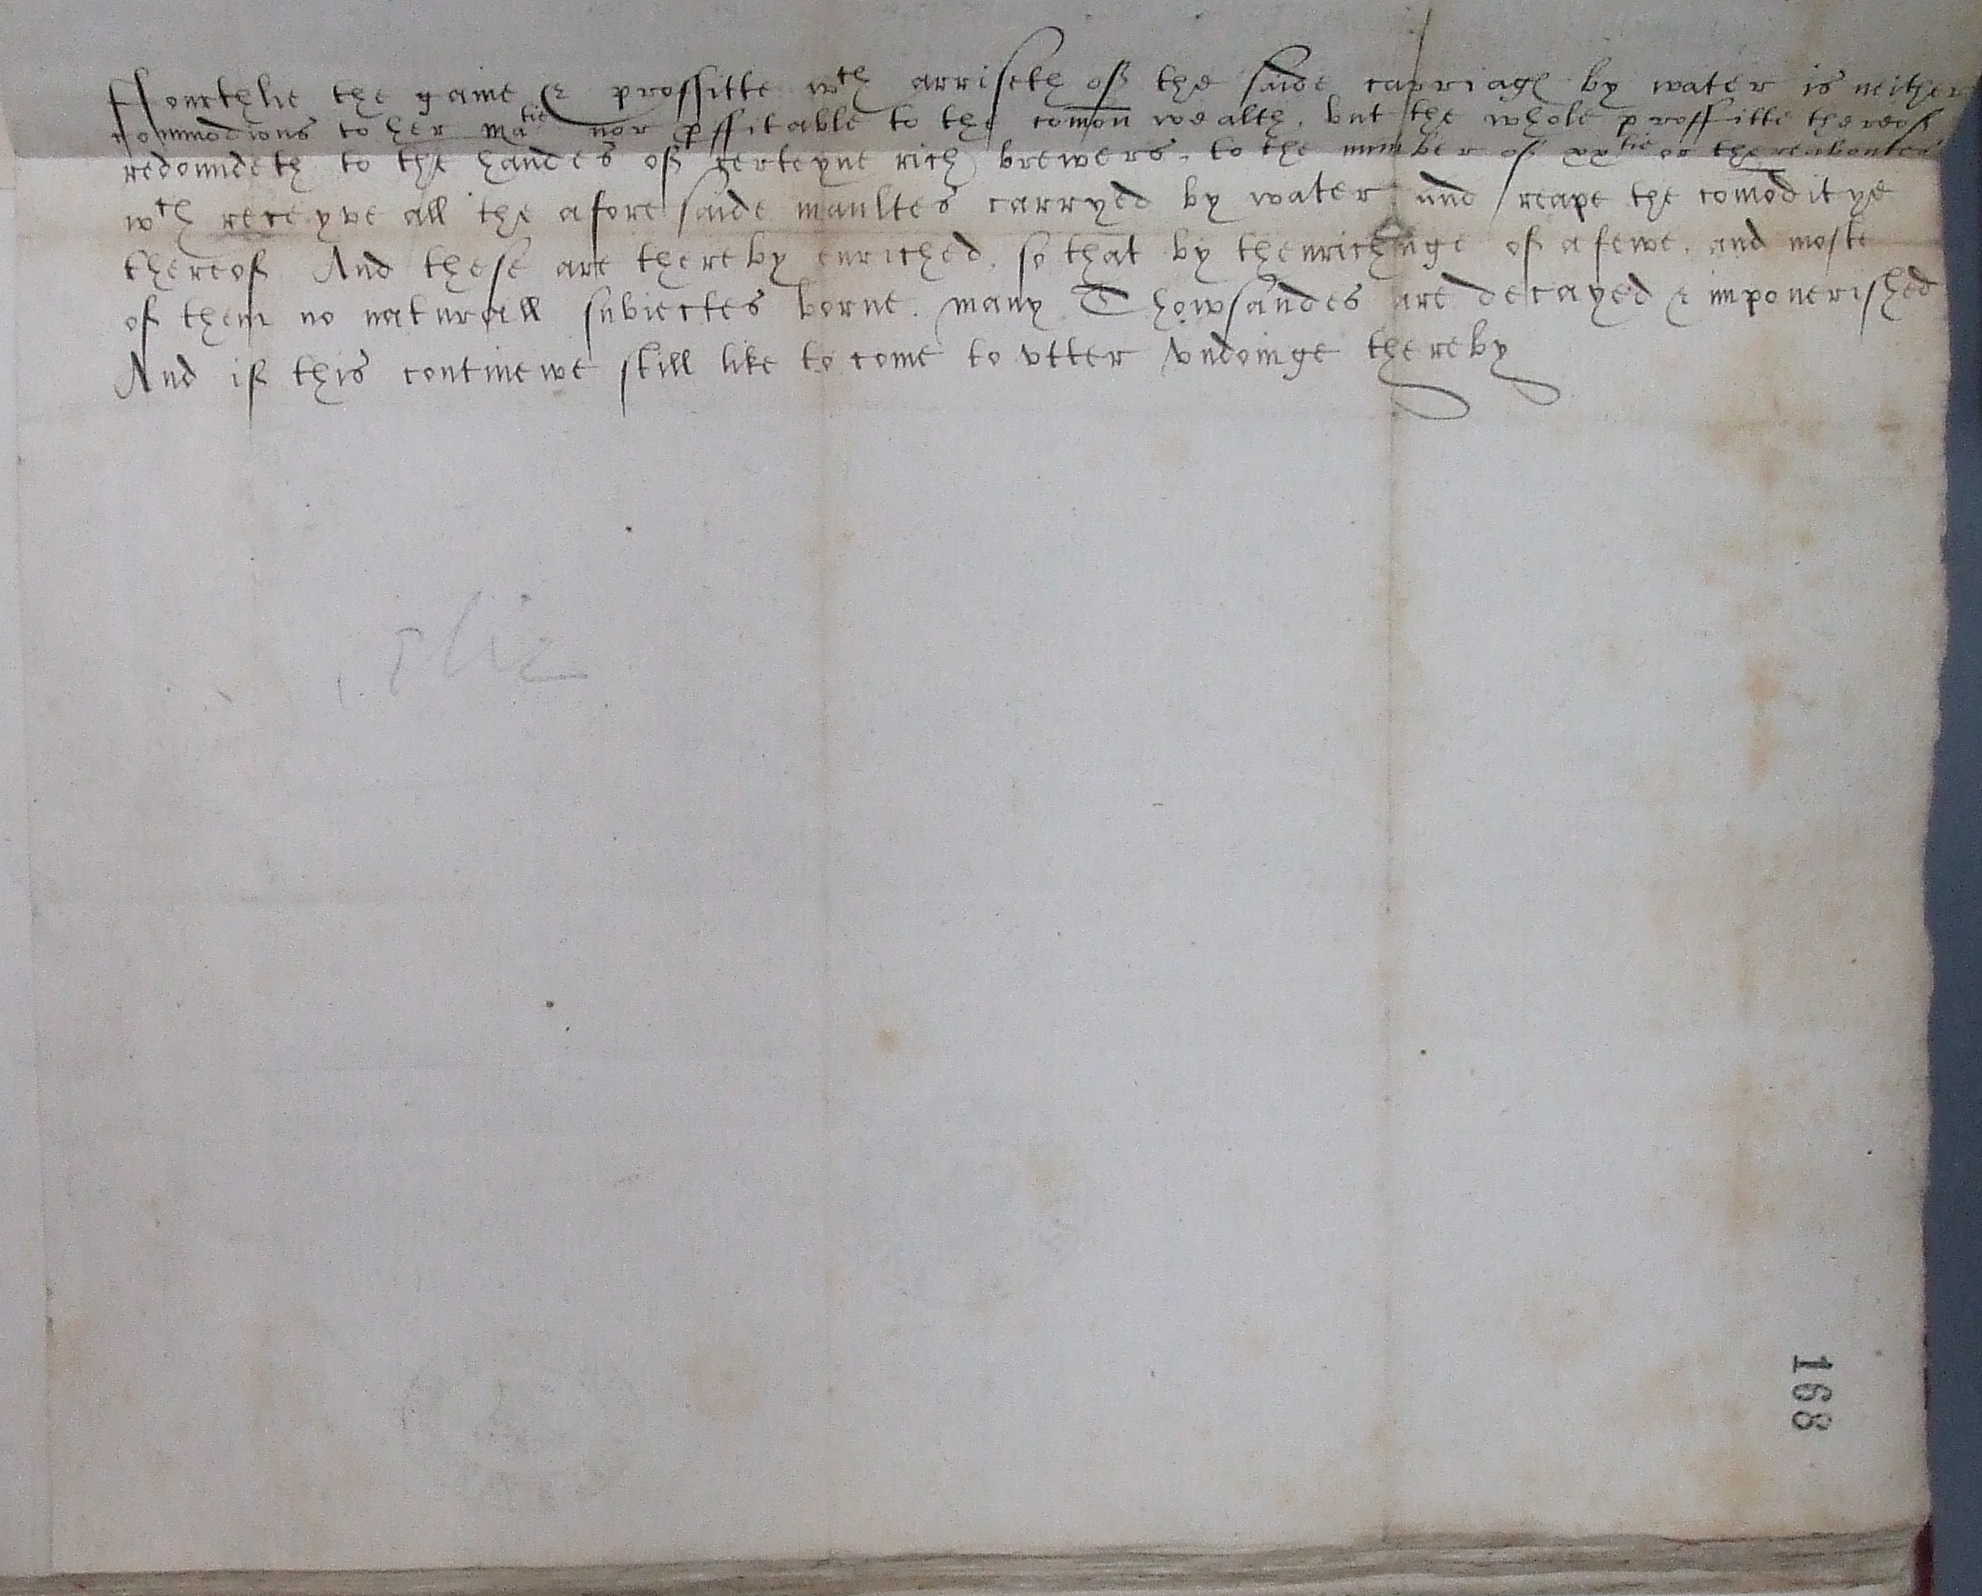 ffourthlie the gaine & proffitte wch arriseth of the saide carriage by water is neither
commodious to her matie nor pffitable to the comon wealth, but the whole proffitte thereof
redoundeth to the handes of certeyne rich brewers, to the number of xxtie or thereaboutes
wch receyve all the afore saide maultes carryed by water and reape the comoditye
thereof And these are thereby enriched, so that by thenrichinge of a fewe, and moste
of them no naturall subiectes borne, many Thowsandes are decayed & impouerished
And if this continewe still like to come to vtter vndoinge thereby
Eliz
168